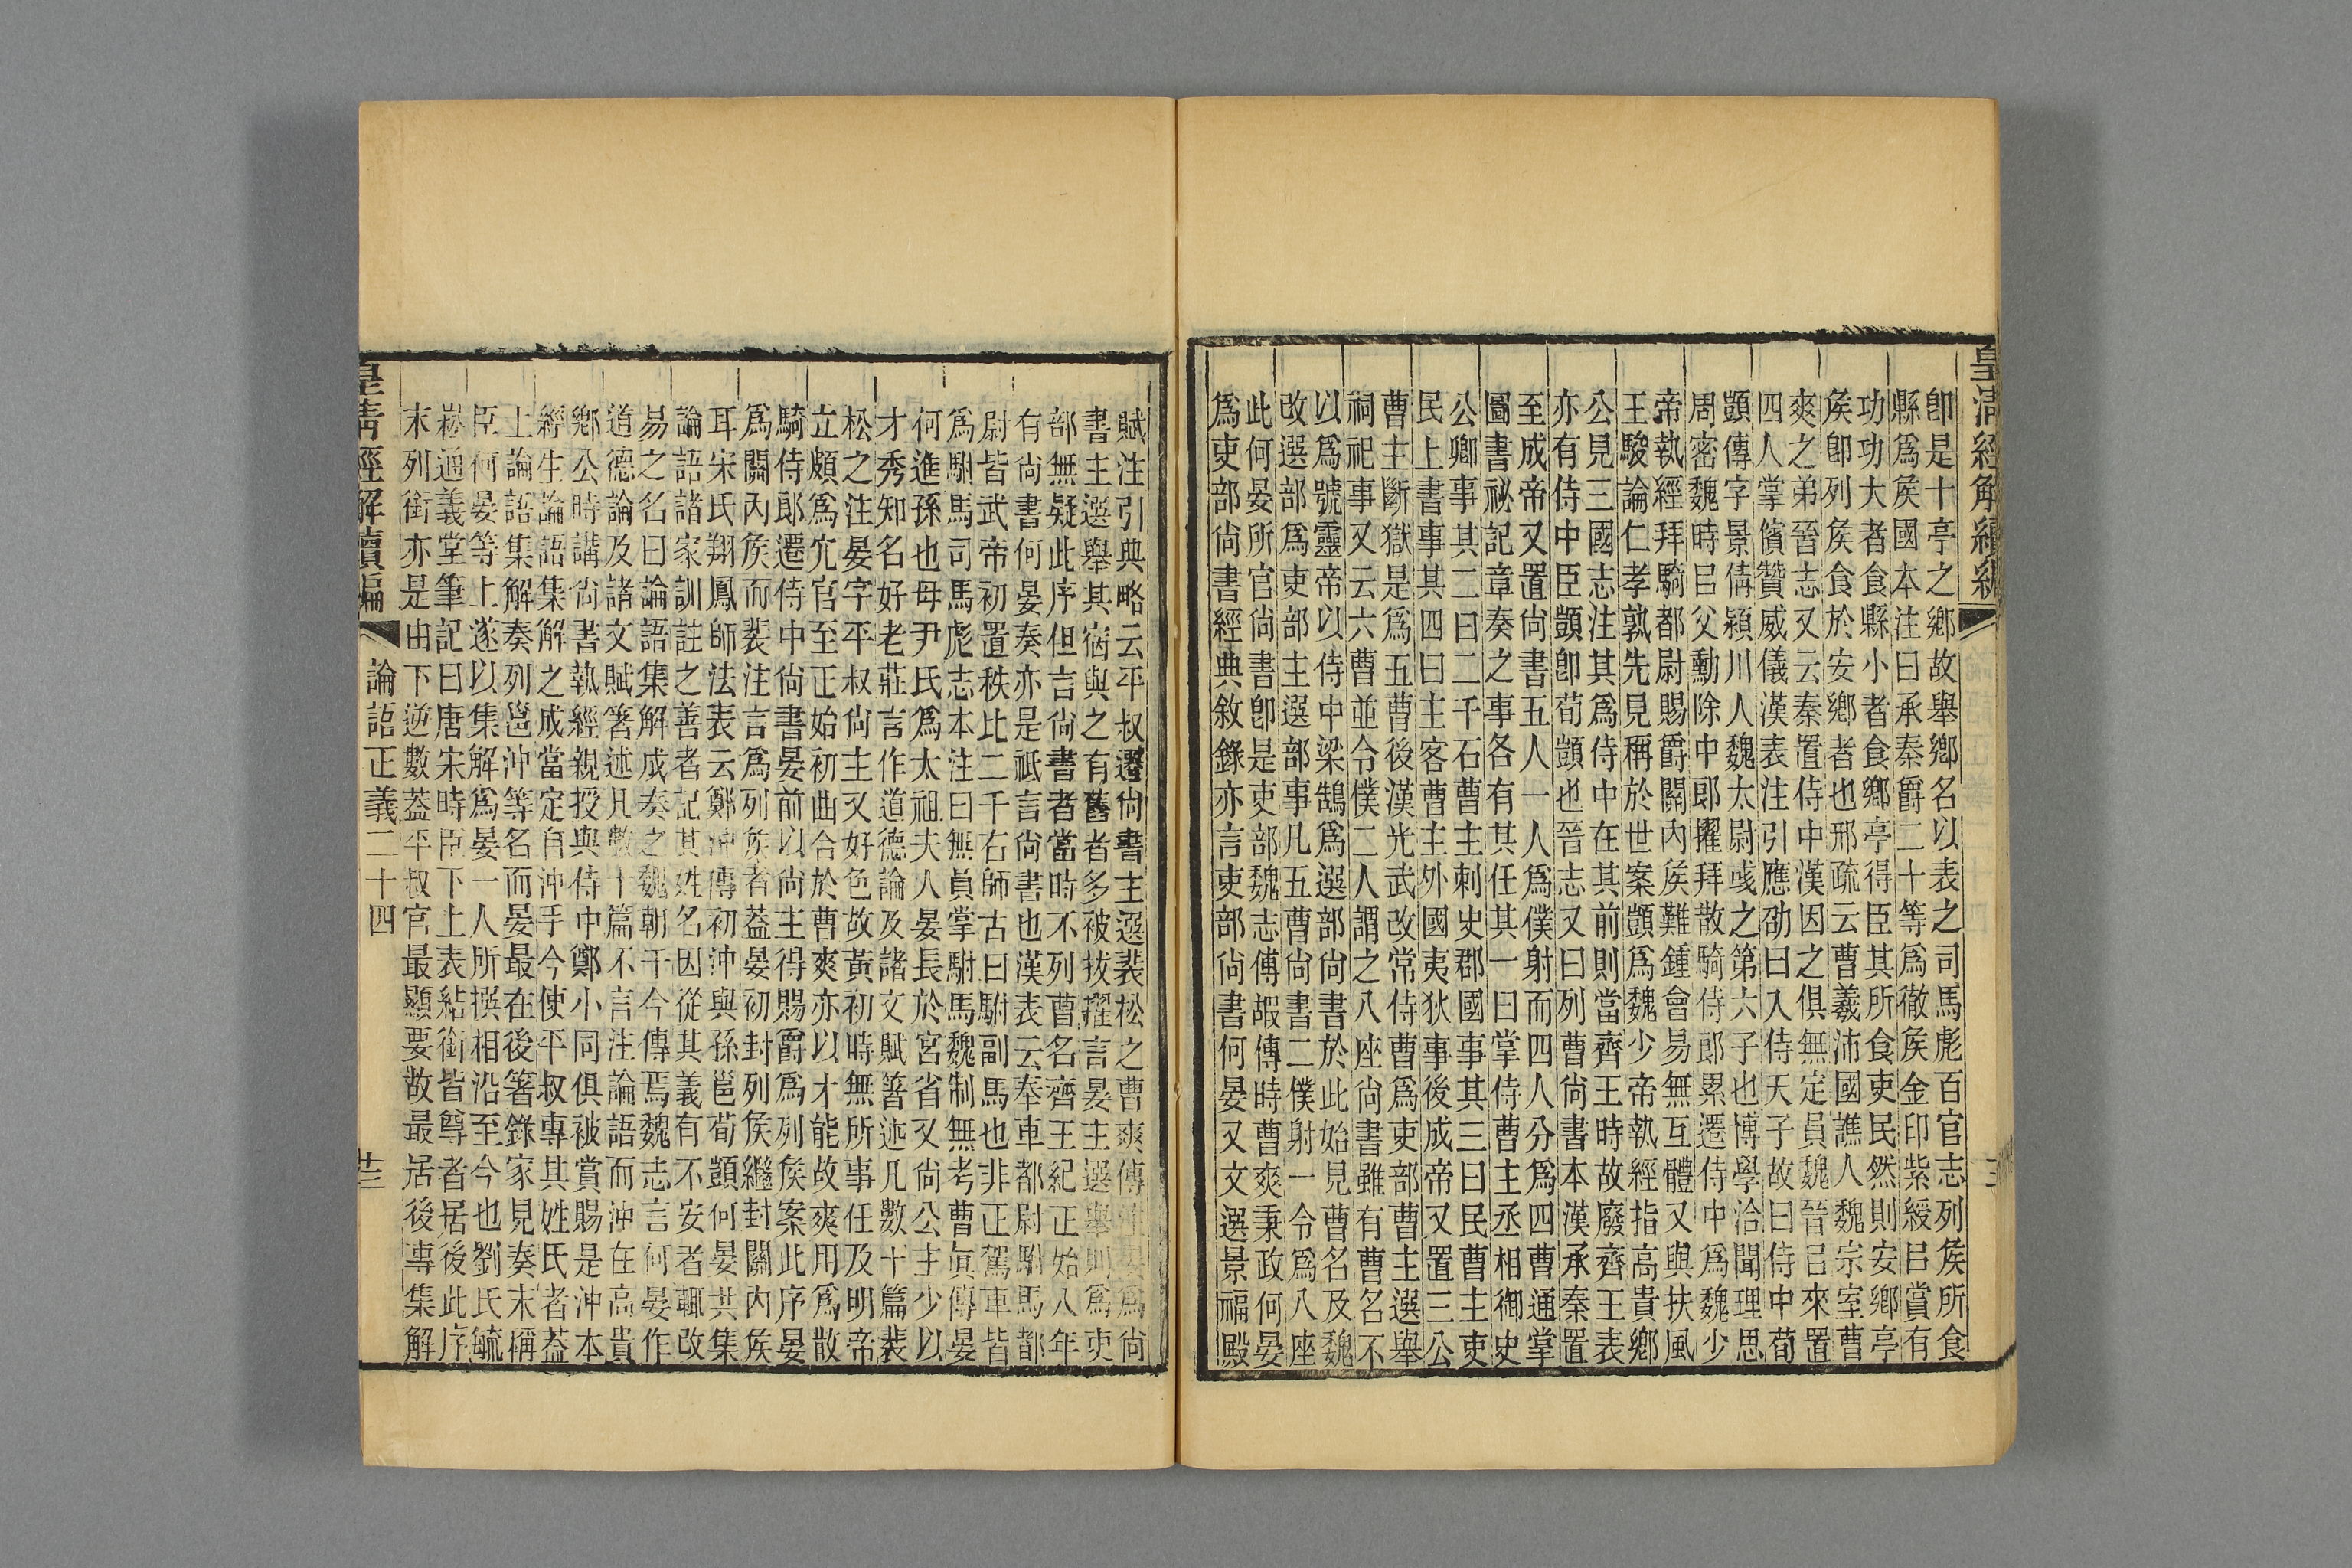 皇清經解續編
卽是十亭之鄉故舉鄉名以表之司馬彪百官志列矦所食
縣爲矦國本注曰承秦爵二十等爲徹矦金印紫綬㠯賞有
功功大者食縣小者食鄉亭得臣其所食吏民然則安鄉亭
矦卽列矦食於安鄉者也邢疏云曹羲沛國譙人魏宗室曹
爽之弟晉志又云秦置侍中漢因之俱無定員魏晉㠯來置
四人掌儐贊威儀漢表注引應劭曰入侍天子故曰侍中荀
顗傳字景倩潁川人魏太尉彧之第六子也博學洽聞理思
周密魏時㠯父勳除中郞擢拜散騎侍郞累遷侍中爲魏少
帝執經拜騎都尉賜爵關內矦難鍾會易無互體又與扶風
王駿論仁孝孰先見稱於世案顗爲魏少帝執經指高貴鄉
公見三國志注其爲侍中在其前則當齊王時故廢齊王表
亦有侍中臣顗卽荀顗也晉志又曰列曹尙書本漢承秦置
至成帝又置尙書五人一人爲僕射而四人分爲四曹通掌
圖書祕記章奏之事各有其任其一曰掌侍曹主丞相御史
公卿事其二曰二千石曹主刺史郡國事其三曰民曹主吏
民上書事其四曰主客曹主外國夷狄事後成帝又置三公
曹主斷獄是爲五曹後漢光武改常侍曹爲吏部曹主選舉
祠祀事又云六曹並令僕二人謂之八座尙書雖有曹名不
以爲號靈帝以侍中梁鵠爲選部尙書於此始見曹名及魏
改選部爲吏部主選部事凡五曹尙書二僕射一令爲八座
此何晏所官尙書卽是吏部魏志傅嘏傳時曹爽秉政何晏
爲吏部尙書經典敘錄亦言吏部尙書何晏又文選景福殿
賦注引典略云平叔遷尙書主選裴松之曹爽傳注晏爲尙
書主選舉其宿與之有舊者多被拔擢言晏主選舉則爲吏
部無疑此序但言尙書者當時不列曹名齊王紀正始八年
有尙書何晏奏亦是祇言尙書也漢表云奉車都尉駙馬都
尉皆武帝初置秩比二千石師古曰駙副馬也非正駕車皆
爲駙馬司馬彪志本注曰無員掌駙馬魏制無考曹眞傳晏
何進孫也母尹氏爲太祖夫人晏長於宮省又尙公主少以
才秀知名好老莊言作道德論及諸文賦箸述凡數十篇裴
松之注晏字平叔尙主又好色故黃初時無所事任及明帝
立頗爲宂官至正始初曲合於曹爽亦以才能故爽用爲散
騎侍郞遷侍中尙書晏前以尙主得賜爵爲列矦案此序晏
爲關內矦而裴注言爲列矦者葢晏初封列矦繼封關內矦
耳宋氏翔鳳師法表云鄭沖傳初沖與孫邕荀顗何晏共集
論語諸家訓註之善者記其姓名因從其義有不安者輒改
易之名曰論語集解成奏之魏朝于今傳焉魏志言何晏作
道德論及諸文賦箸述凡數十篇不言注論語而沖在高貴
鄉公時講尙書執經親授與侍中鄭小同俱被賞賜是沖本
經生論語集解之成當定自沖手今使平叔專其姓氏者葢
上論語集解奏列邕沖等名而晏最在後箸錄家見奏末稱
臣何晏等上遂以集解爲晏一人所撰相沿至今也劉氏毓
崧通義堂筆記曰唐宋時臣下上表結銜皆尊者居後此序
末列銜亦是由下逆數葢平叔官最顯要故最居後專集解
皇清經解續編
論語正義二十四